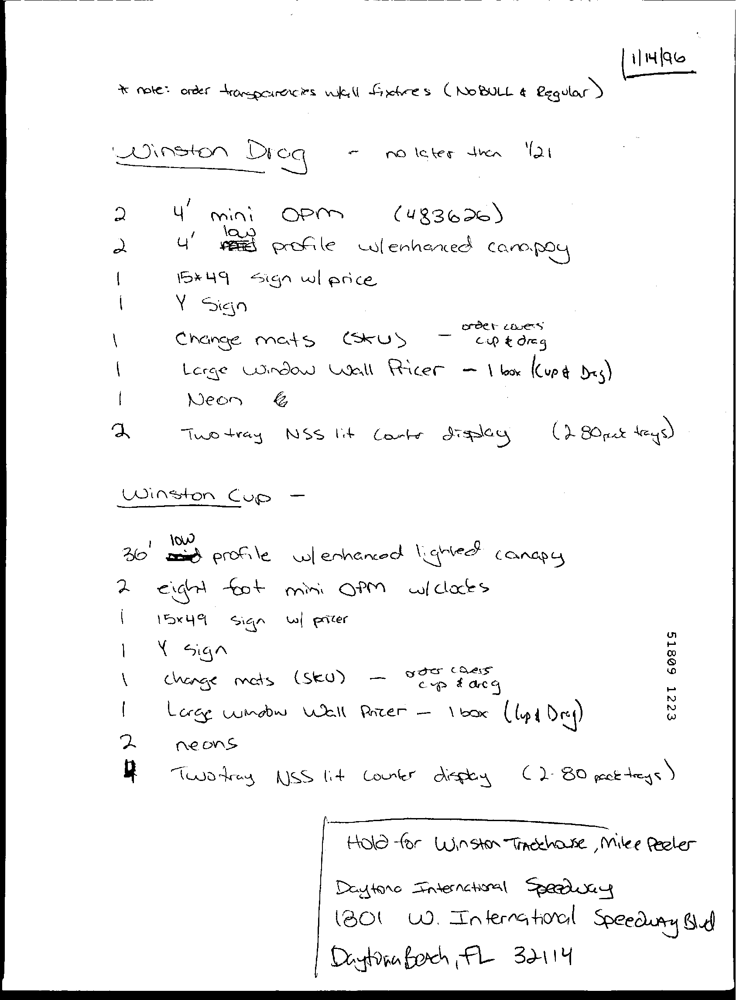 1/14/96
* note: order transparencies w/all fixtures (NO BULL & Regular)
Winston Drag - no later than 1/21
2 4' mini OPM (483626)
2 4' low profile w/enhanced canapoy
1 15*49 sign w/ price
1 Y Sign
1 Change mats (SKU) - order covers cup & drag
1 Large Window Wall Pricer - 1 box (Cup & Drag)
1 Neon
2 Two tray NSS lit counter display (2 80 pack trays)
Winston Cup -
36' low profile w/enhanced lighted canapy
2 eight foot mini OPM w/clocks
1 15x49 sign w/ pricer
1 Y sign
1 change mats (SKU) - order covers cup & drag
1 Large window Wall Pricer - 1 box (Cup & Drag)
2 neons
4 Two tray NSS lit counter display (2-80 pack trays)
51809 1223
Hold for Winston Trackhouse, Mike Peeler
Daytona International Speedway
1801 W. International Speedway Blvd
Daytona Beach, FL 32114